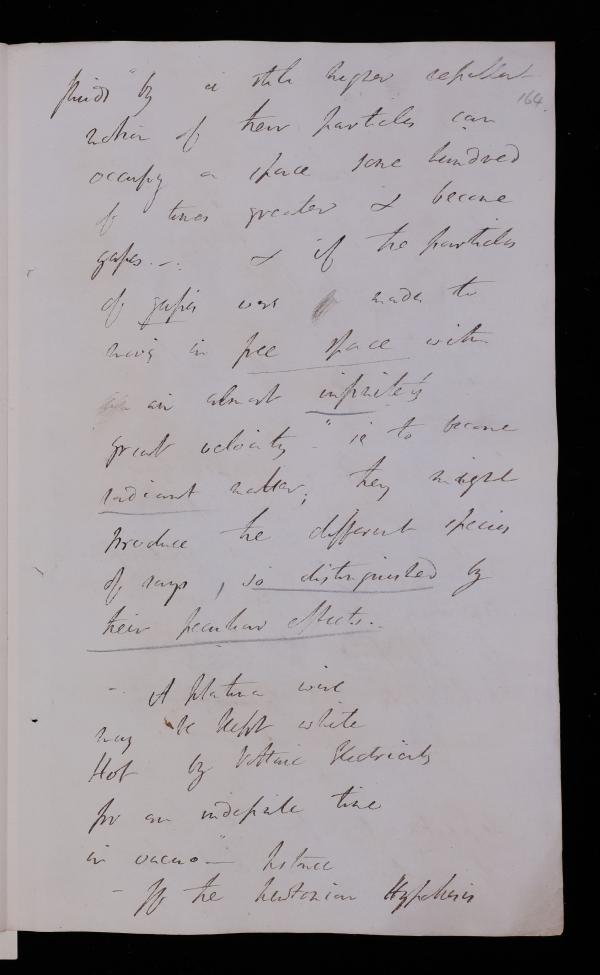 fluids" by a still higher repellent
164.
action of their particles can
occupy a space some hundred
of times greater & become
gases. — & if the particles
of gases were made to
move in free space with
an almost infinitely
great velocity – "ie to become
radiant matter, they might
produce the different species
of rays, so distinguished by
their peculiar effects. –
– A platina wire
may be kept white
Hot by Voltaic Electricity
for an indefinite time
in vacuo —
– If the Newtonian Hypothesis